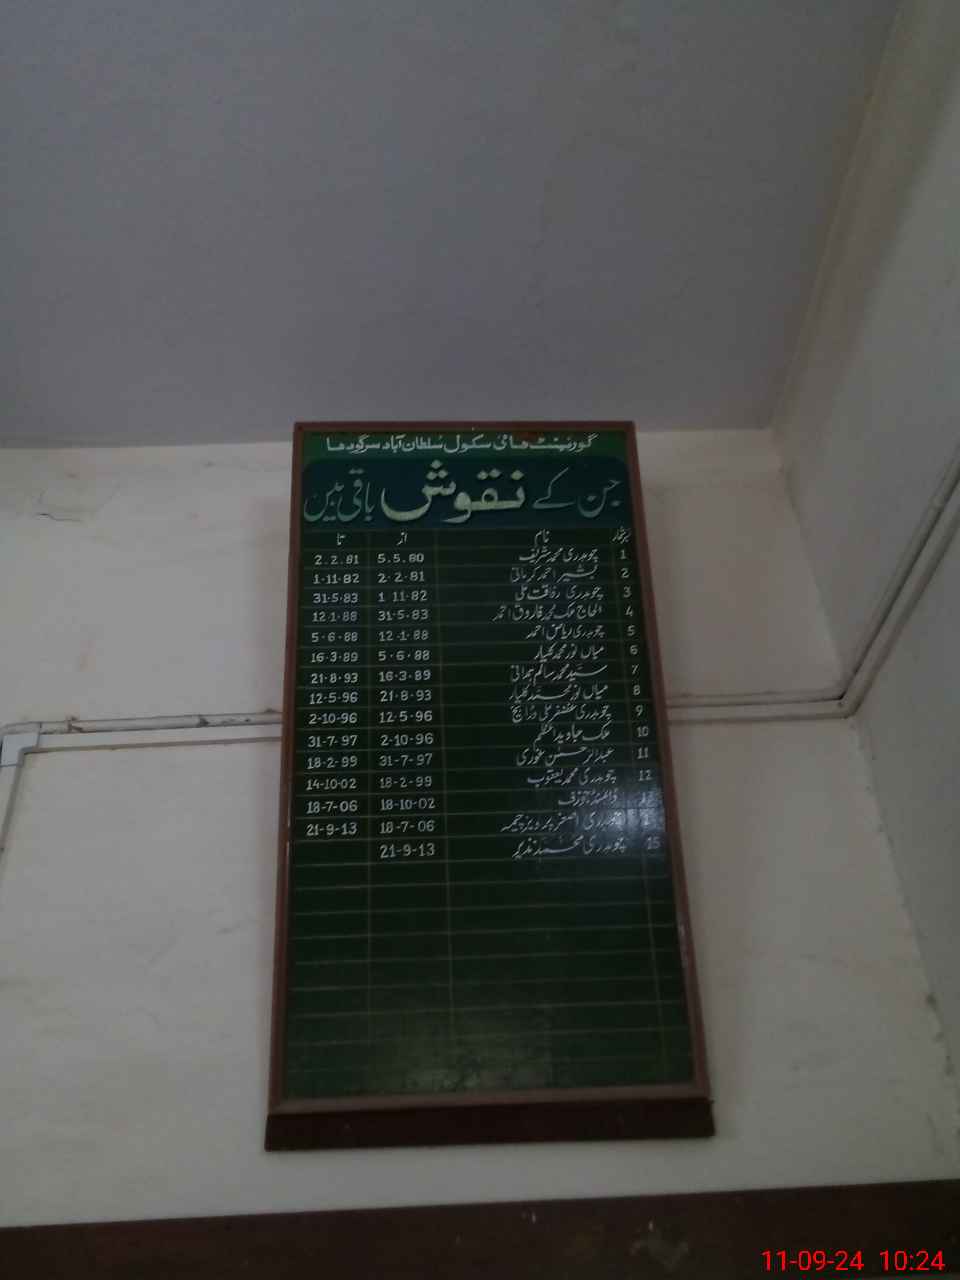 گورنمنٹ ہائی سکول سُلطان آباد سرگودھا
جن کے نقوش باقی ہیں
نمبرشمار نام از تا
1 چوہدری محمد شریف 5.5.80 2.2.81
2 بشیر احمد کرمانی 2.2.81 1.11.82
3 چوہدری رفاقت علی 1 11.82 31.5.83
4 الحاج ملک محمد فاروق احمد 31.5.83 12.1.88
5 چوہدری ریاض احمد 12.1.88 5.6.88
6 میاں نور محمد کلیار 5.6.88 16.3.89
7 سیّد محمد سالم ہمدانی 16.3.89 21.8.93
8 میاں نور محمّد کلیار 21.8.93 12.5.96
9 چوہدری غضنفر علی وڑائچ 12.5.96 2-10-96
10 ملک جاوید اعظم 2-10-96 31-7-97
11 عبدالرحمٰن غوری 31-7-97 18-2-99
12 چوہدری محمد یعقوب 18-2-99 14-10-02
18-10-02 18-7-06
چوہدری اصغر پرویز چیمہ 18-7-06 21-9-13
15 چوہدری محمّد نذیر 21-9-13
11-09-24 10:24